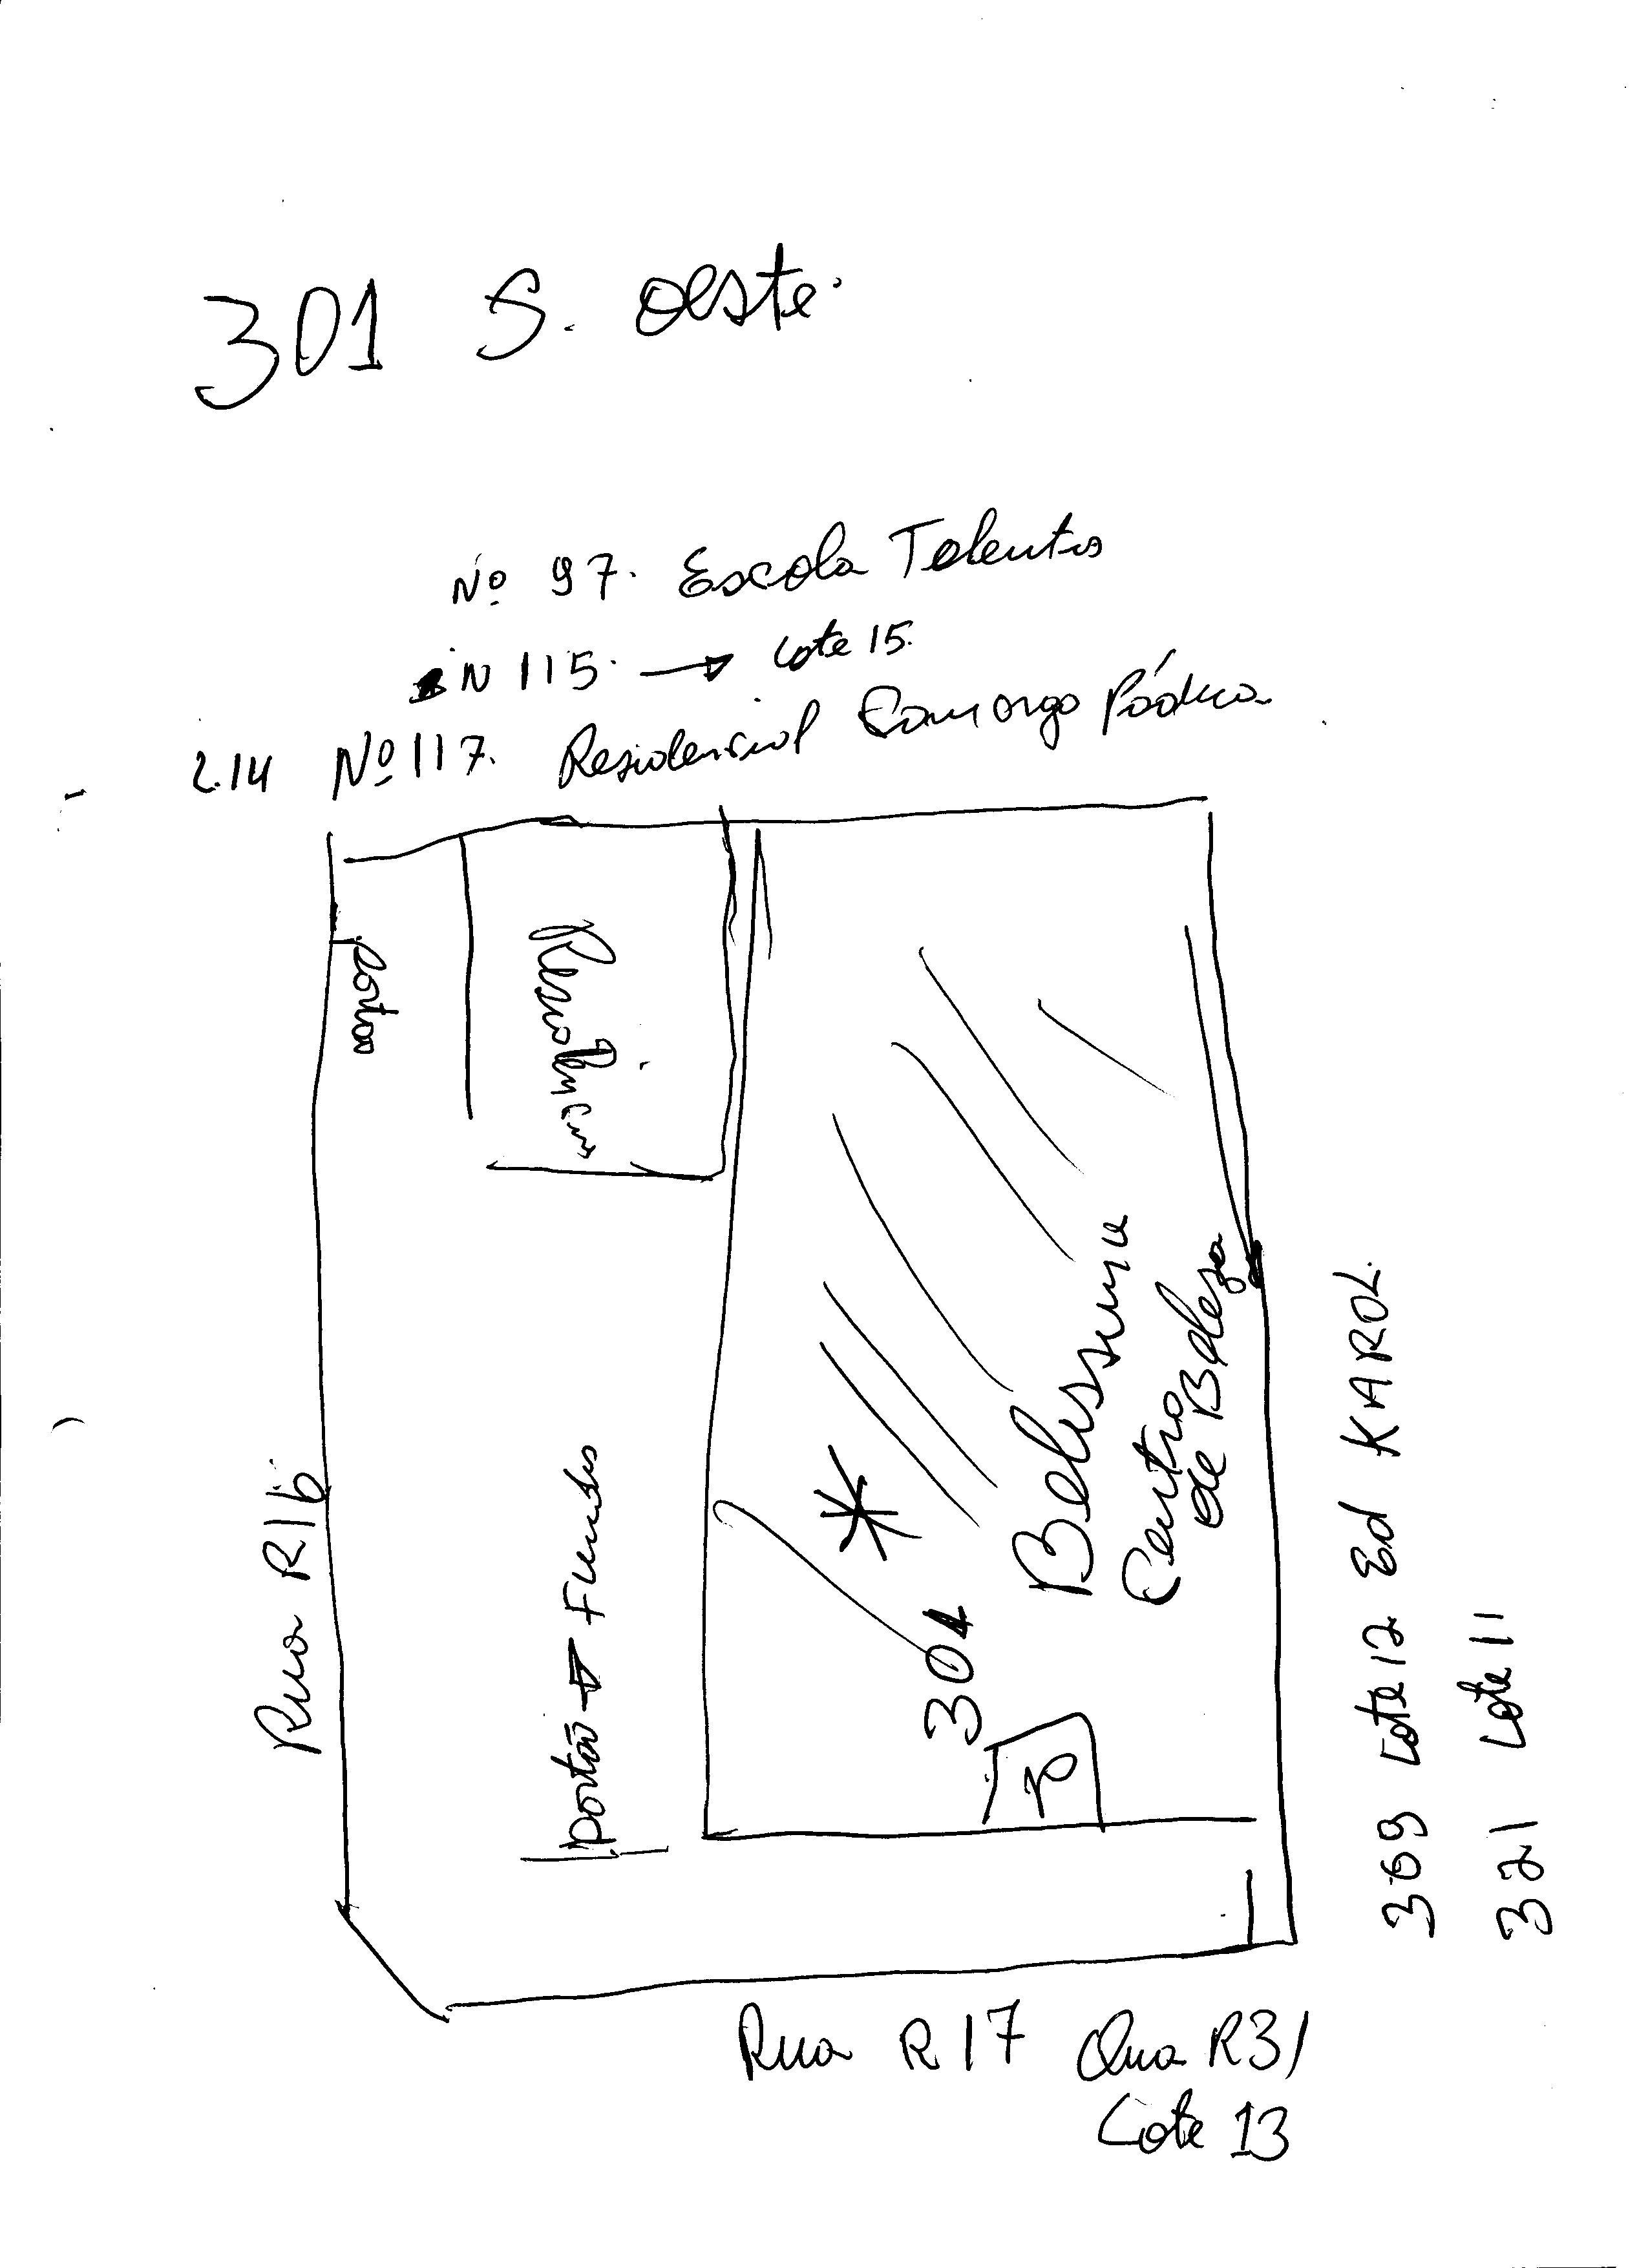 301 S. oeste.
Nº 97. Escola Talentos
N 115. → Lote 15.
L.14 Nº 117. Residencial Camargo Pádua
Portão
Residencia
Rua R16
portão → Fundos
304
Belissima
Centro
de Beleza
309 Lote 12 Ed KAROL.
321 Lote 11
Rua R17 Qua R31
Lote 13